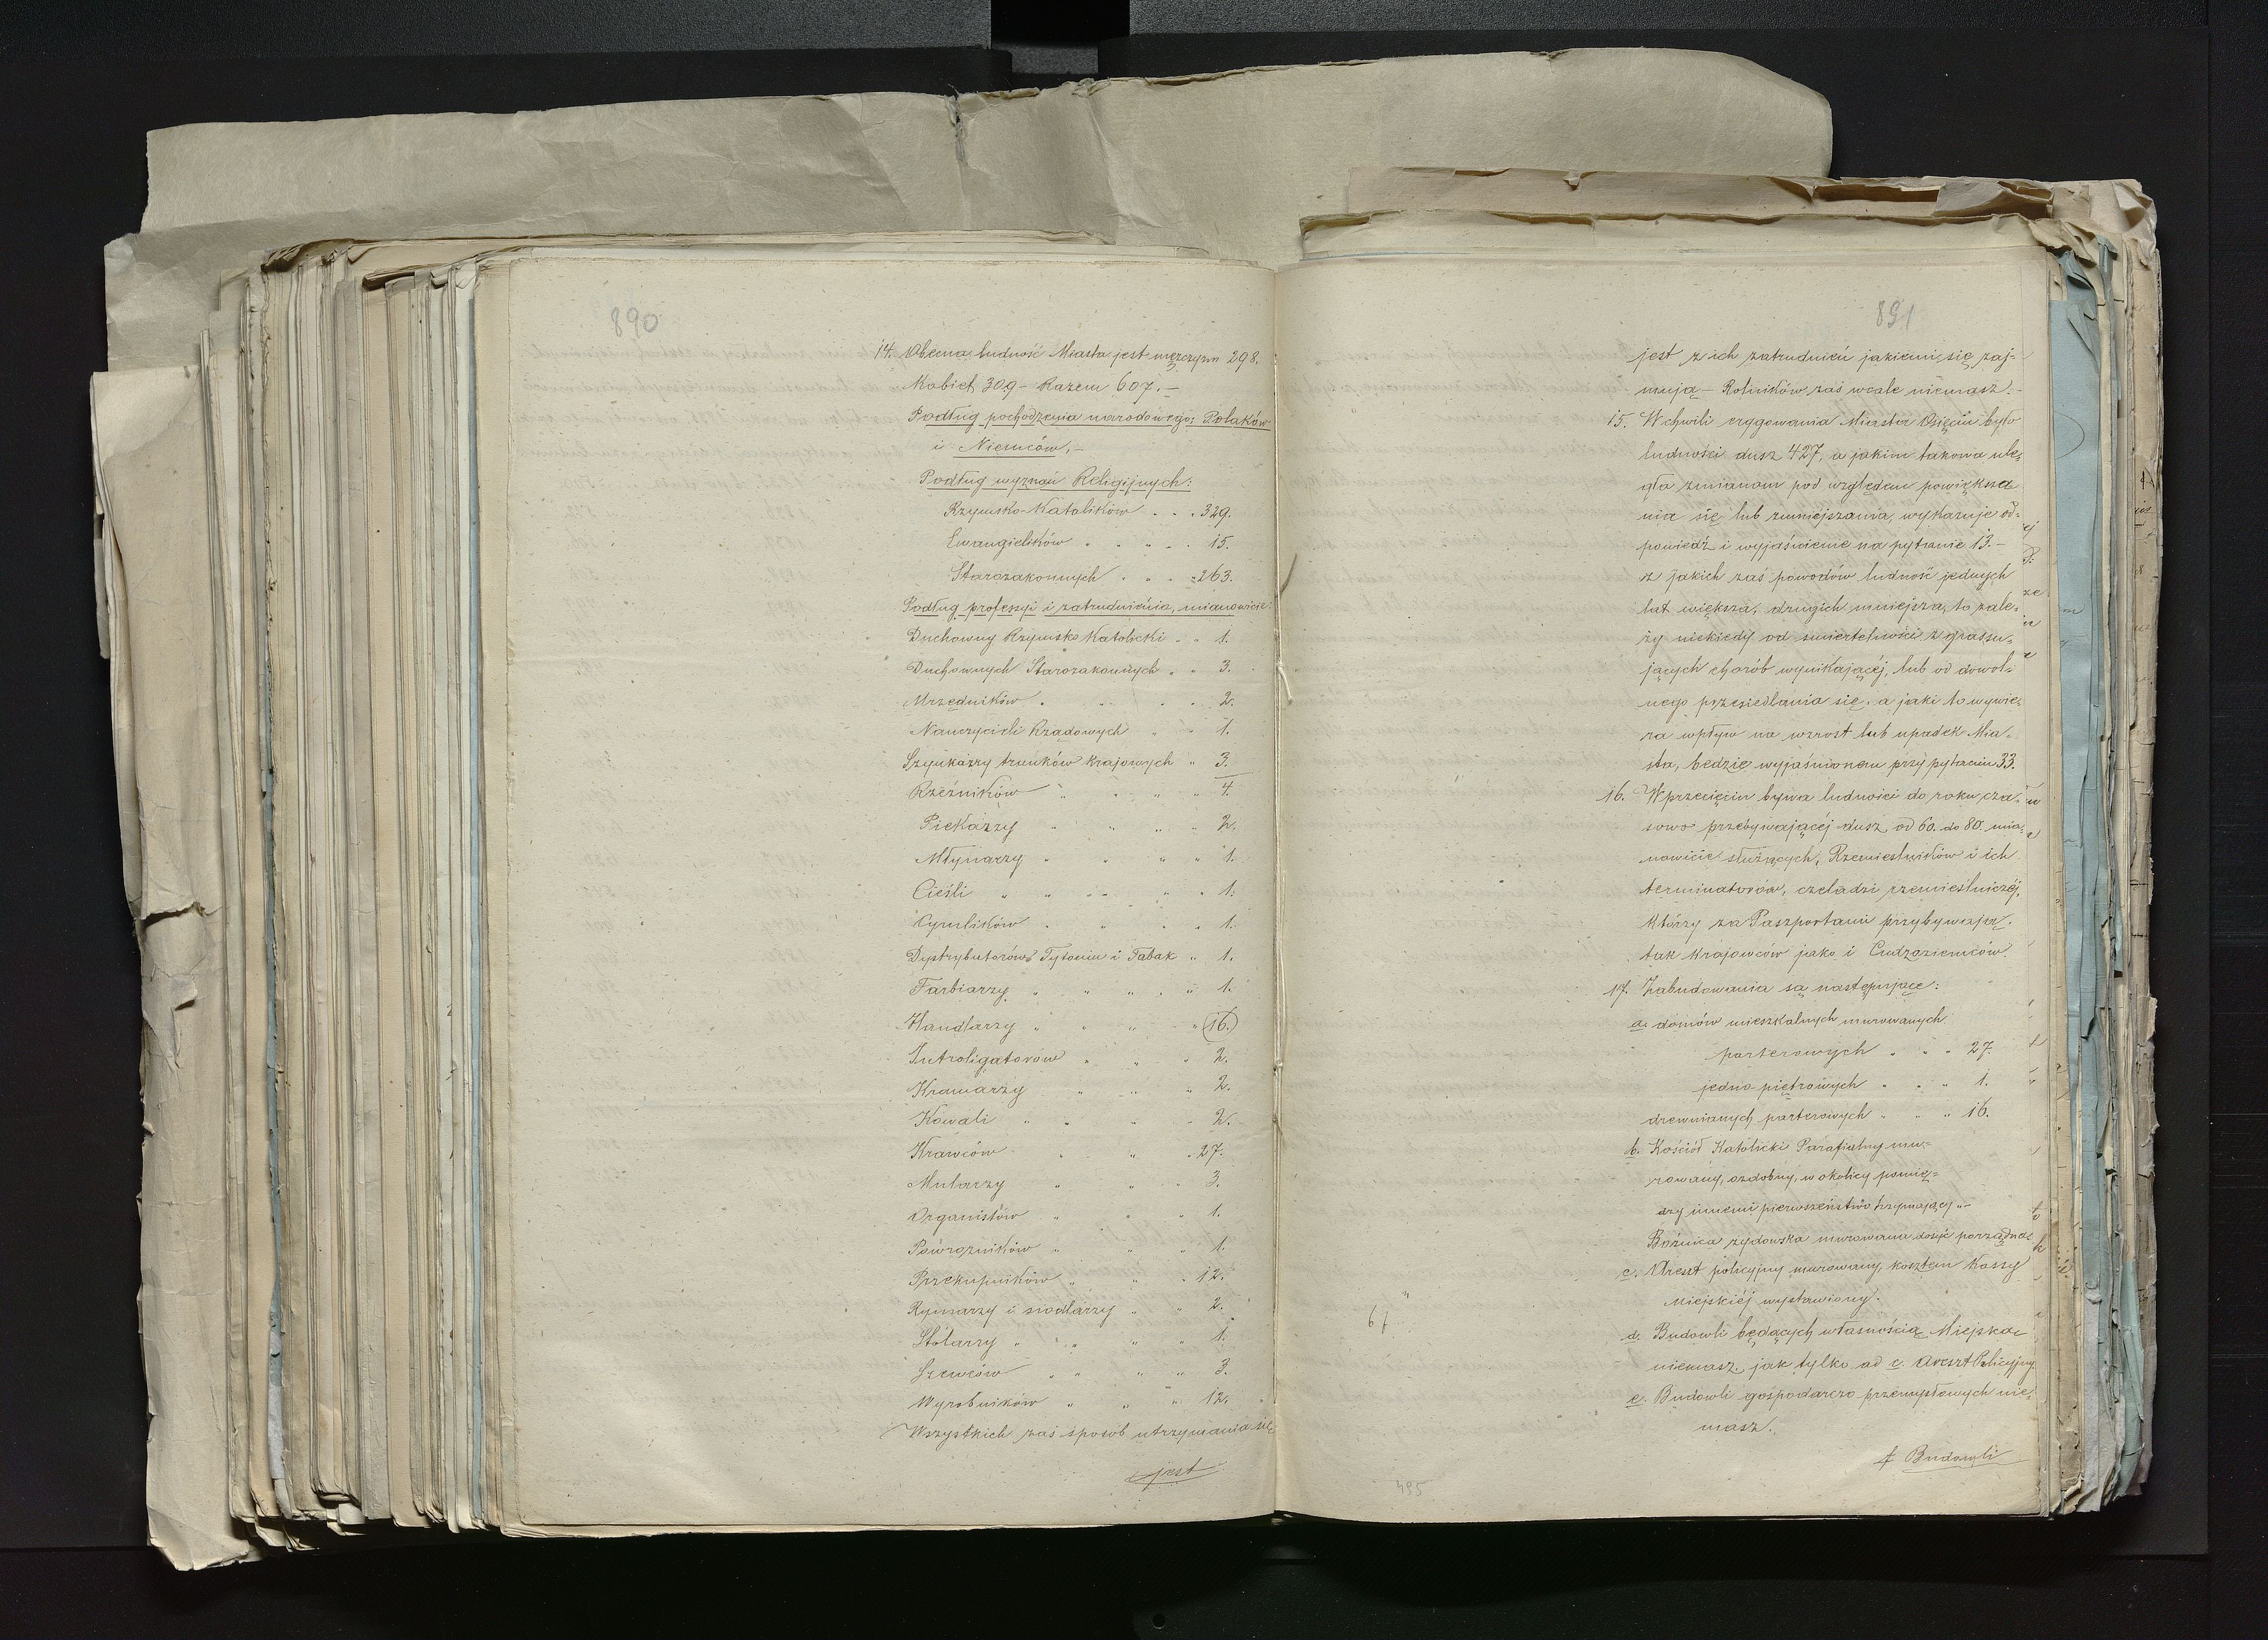 890
14. Obecna ludność Miasta jest męzczyzn 298.
Kobiet 309 – Razem 607. –
Podług pochodzenia narodowego: Polaków
i Niemców, –
Podług wyznań Religijnych:
Rzymsko-Katolików . . . 329.
Ewangielików . . . . 15.
Starozakonnych . . . 263.
Podług professyi i zatrudnienia, mianowicie:
Duchowny Rzymsko Katolicki „ „ 1.
Duchownych Starozakonnych „ „ 3.
Urzędników „ „ „ „ 2.
Nauczycieli Rządowych „ „ 1.
Szynkarzy trunków krajowych „ 3.
Rzeźników „ „ „ „ 4.
Piekarzy „ „ „ „ 2.
Młynarzy „ „ „ „ 1.
Cieśli „ „ „ „ „ 1.
Cyrulików „ „ „ „ 1.
Dystrybutorów Tytoniu i Tabak „ 1.
Farbiarzy „ „ „ „ 1.
Handlarzy „ „ „ „ (16.)
Introligatorów „ „ „ 2.
Kramarzy „ „ „ 2.
Kowali „ „ „ „ 2.
Krawców „ „ „ 27.
Mularzy „ „ „ 3.
Organistów „ „ „ 1.
Powroźników „ „ „ 1.
Przekupników „ „ „ 12.
Rymarzy i siodlarzy „ „ 2.
Stolarzy „ „ „ „ 1.
Szewców „ „ „ „ 3.
Wyrobników „ „ „ 12.
Wszystkich zaś sposób utrzymania się
jest
891
jest z ich zatrudnień jakiemi się zaj-
mują – Rolników zaś wcale niemasz. –
15. W chwili erygowania Miasta Osięcin było
ludności dusz 427, a jakim takowa ule-
gła zmianom pod względem powiększa
nia się lub zmniejszania, wykazuje od-
powiedź i wyjaśnienie na pytanie 13. –
z jakich zaś powodów ludność jednych
lat większa, drugich mniejsza, to zale-
ży niekiedy od smiertelności z grassu-
jących chorób wynikającéj, lub od dowol-
nego przesiedlania się, a jaki to wywie-
ra wpływ na wzrost lub upadek Mia-
sta, będzie wyjaśnionem przy pytaniu 33.
16. W przecięciu bywa ludności do roku cza-
sowo przebywającéj dusz od 60. do 80. mia-
nowicie służących, Rzemieslników i ich
terminatorów, czeladzi rzemieślniczéj,
którzy za Paszportami przybywają.
tak krajowców jako i Cudzoziemców.
17. Zabudowania są następujące:
a. domów mieszkalnych murowanych
parterowych „ „ „ 27.
jedno piętrowych „ „ „ 1.
drewnianych parterowych „ „ „ 16.
b. Kościół Katolicki Parafialny mu-
rowany, ozdobny, w okolicy pomię-
dzy innemi pierwszeństwo trzymający „ –
Bożnica żydowska murowana dosyć porządna
c. Areszt policyjny murowany, kosztem Kassy
Miejskiéj wystawiony.
d. Budowli będących własnością Miejską
niemasz, jak tylko ad c. Areszt Policyjny.
e. Budowli gospodarczo-przemysłowych nie-
masz.
f Budowli
67
495